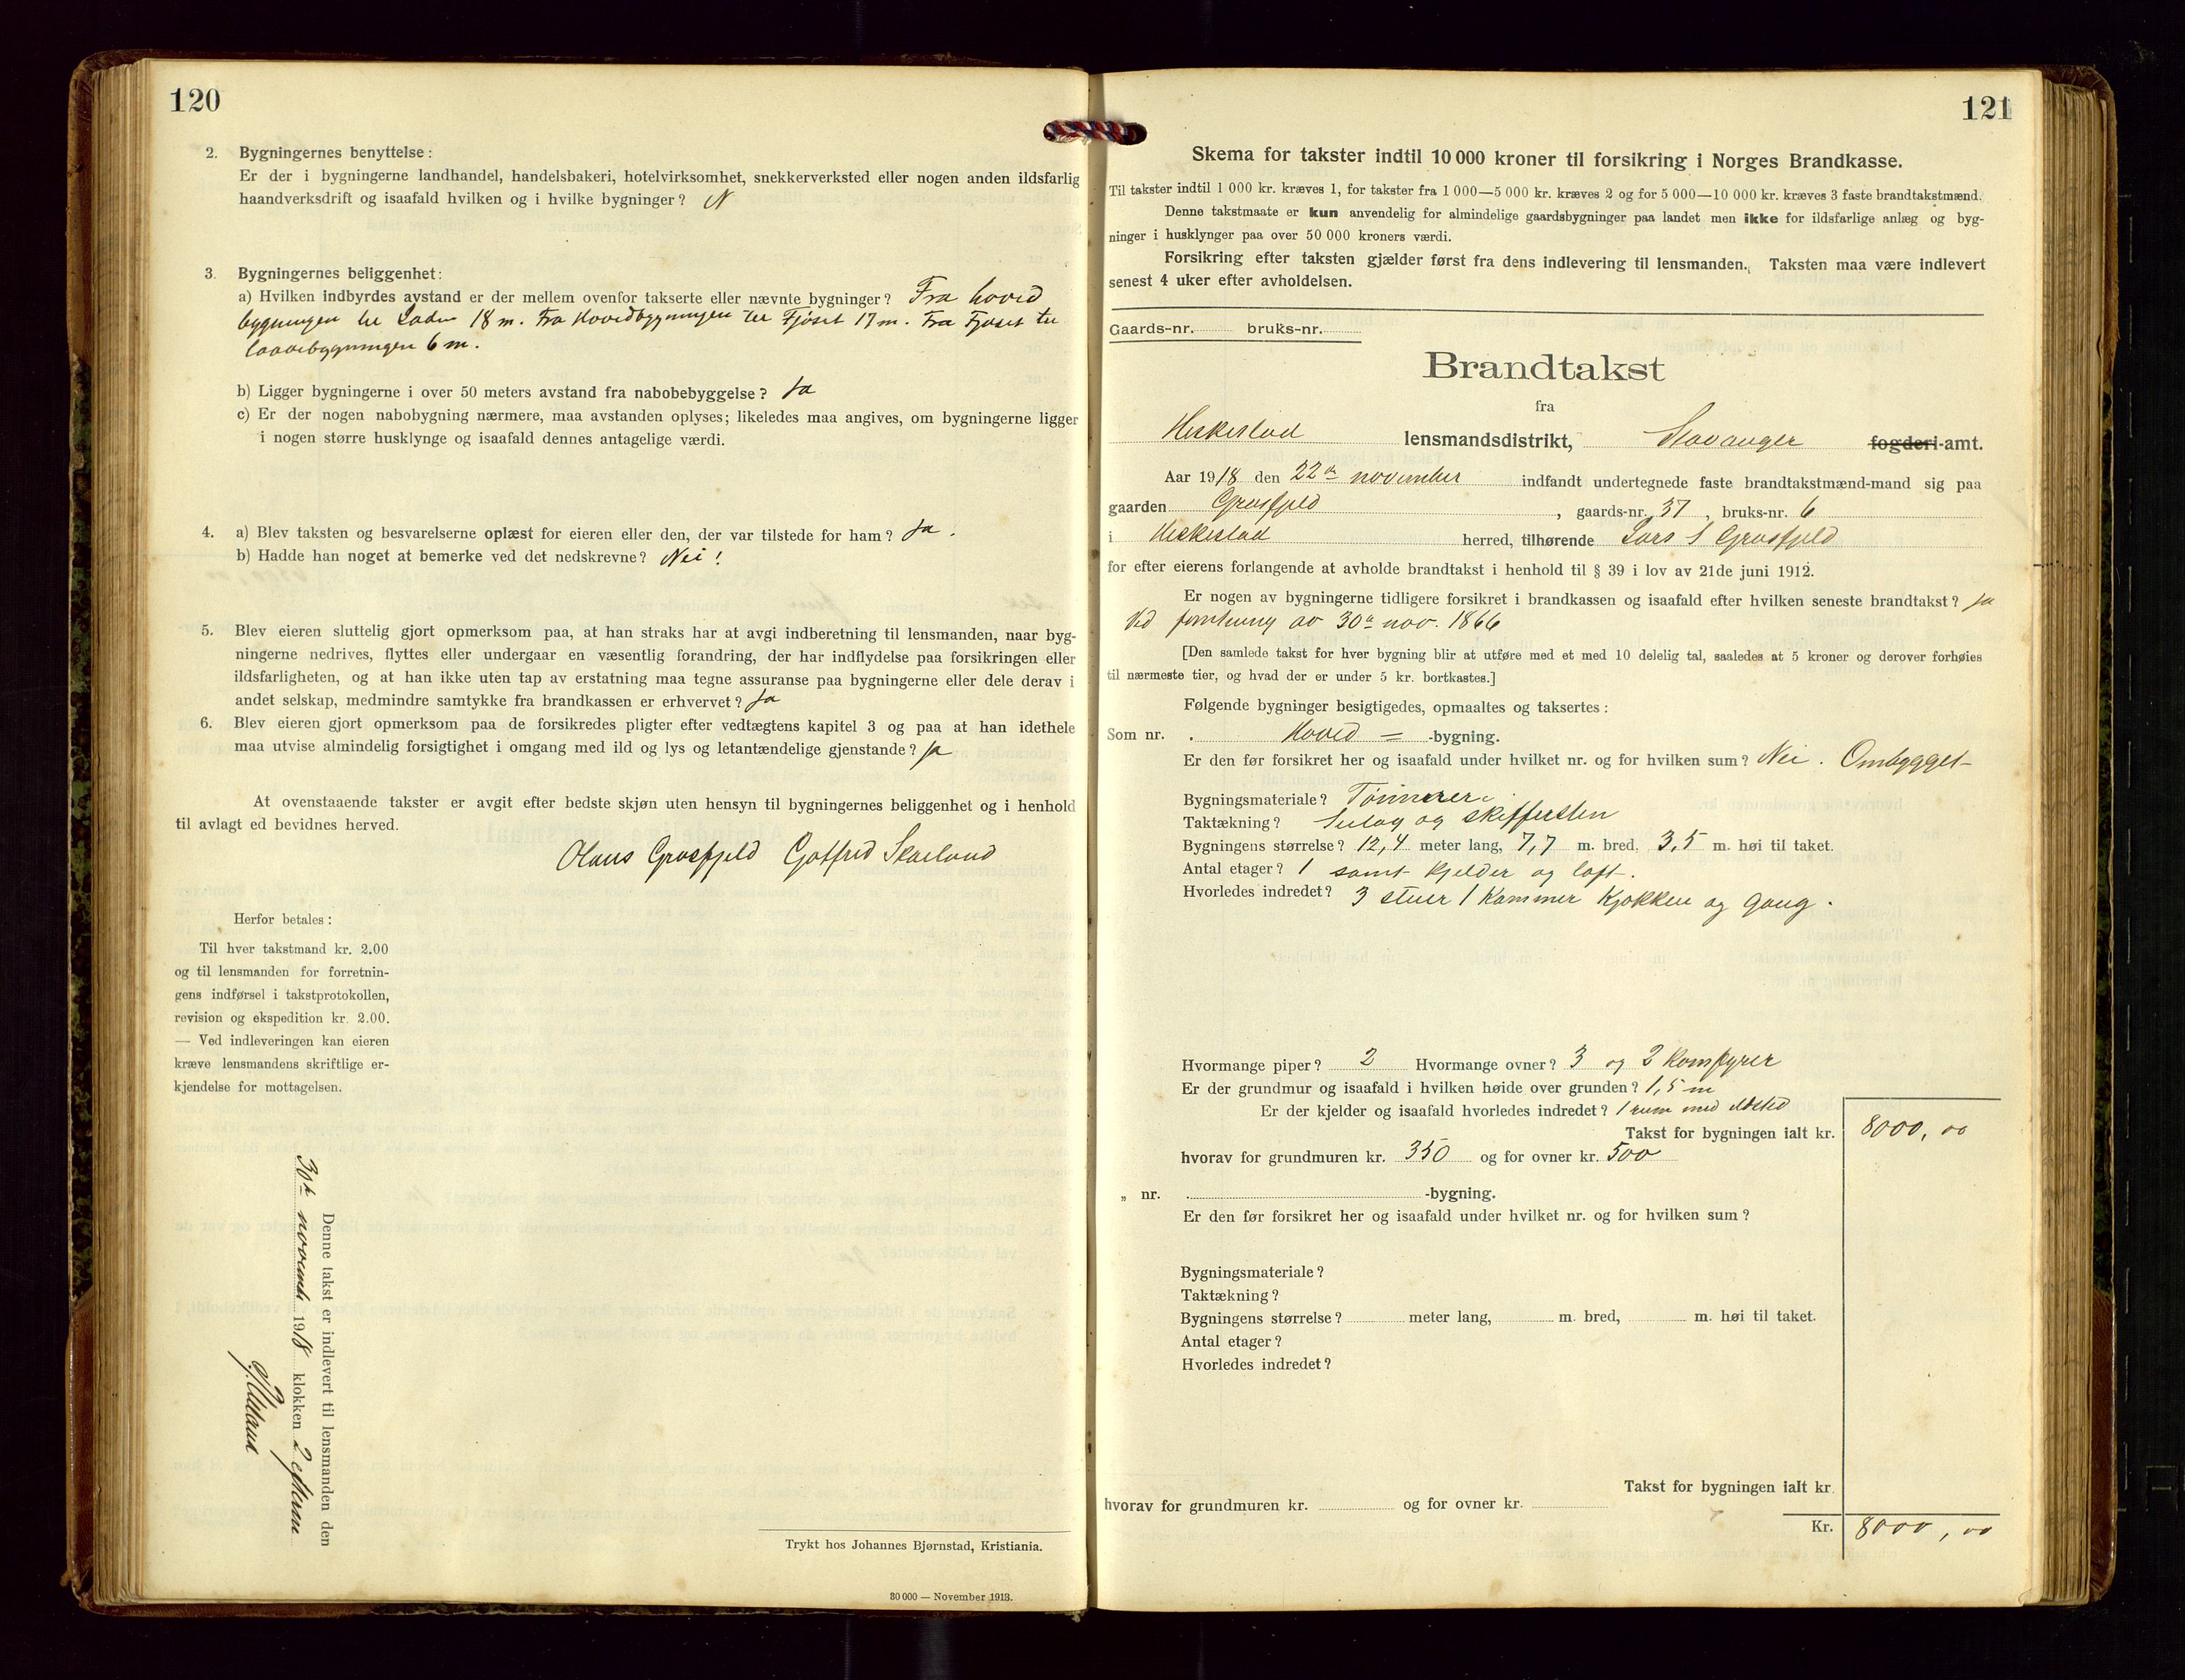 120
2. Bygningernes benyttelse:
Er der i bygningerne landhandel, handelsbakeri, hotelvirksomhet, snekkerverksted eller nogen anden ildsfarlig
haandverksdrift og isaafald hvilken og i hvilke bygninger? N
3. Bygningernes beliggenhet:
a) Hvilken indbyrdes avstand er der mellem ovenfor takserte eller nævnte bygninger? Fra hoved
bygningen til Laden 18 m. Fra Hovedbygningen til Fjöset 17 m. Fra Fjöset til
laavebygningen 6 m.
b) Ligger bygningerne i over 50 meters avstand fra nabobebyggelse? Ja
c) Er der nogen nabobygning nærmere, maa avstanden oplyses; likeledes maa angives, om bygningerne ligger
i nogen større husklynge og isaafald dennes antagelige værdi.
4. a) Blev taksten og besvarelserne oplæst for eieren eller den, der var tilstede for ham? Ja.
b) Hadde han noget at bemerke ved det nedskrevne? Nei!
5. Blev eieren sluttelig gjort opmerksom paa, at han straks har at avgi indberetning til lensmanden, naar byg-
ningerne nedrives, flyttes eller undergaar en væsentlig forandring, der har indflydelse paa forsikringen eller
ildsfarligheten, og at han ikke uten tap av erstatning maa tegne assuranse paa bygningerne eller dele derav i
andet selskap, medmindre samtykke fra brandkassen er erhvervet? Ja
6. Blev eieren gjort opmerksom paa de forsikredes pligter efter vedtægtens kapitel 3 og paa at han idethele
maa utvise almindelig forsigtighet i omgang med ild og lys og letantændelige gjenstande? Ja
At ovenstaaende takster er avgit efter bedste skjøn uten hensyn til bygningernes beliggenhet og i henhold
til avlagt ed bevidnes herved.
Olaus Grøsfjeld Gotfred Skarland
Herfor betales:
Til hver takstmand kr. 2.00
og til lensmanden for forretnin-
gens indførsel i takstprotokollen,
revision og ekspedition kr. 2.00.
— Ved indleveringen kan eieren
kræve lensmandens skriftlige er-
kjendelse for mottagelsen.
Denne takst er indlevert til lensmanden den
30te november 1918 klokken 2 efterm
Trykt hos Johannes Bjørnstad, Kristiania.
30 000 — November 1913.
121
Skema for takster indtil 10 000 kroner til forsikring i Norges Brandkasse.
Til takster indtil 1 000 kr. kræves 1, for takster fra 1 000—5 000 kr. kræves 2 og for 5 000—10 000 kr. kræves 3 faste brandtakstmænd.
Denne takstmaate er kun anvendelig for almindelige gaardsbygninger paa landet men ikke for ildsfarlige anlæg og byg-
ninger i husklynger paa over 50 000 kroners værdi.
Forsikring efter taksten gjælder først fra dens indlevering til lensmanden. Taksten maa være indlevert
senest 4 uker efter avholdelsen.
Gaards-nr. bruks-nr.
Brandtakst
fra
Heskestad lensmandsdistrikt, Stavanger fogderi-amt.
Aar 1918 den 22de november indfandt undertegnede faste brandtakstmænd-mand sig paa
gaarden Grøsfjeld, gaards-nr. 37, bruks-nr. 6
i Heskestad herred, tilhørende Lars S Grøsfjeld
for efter eierens forlangende at avholde brandtakst i henhold til § 39 i lov av 21de juni 1912.
Er nogen av bygningerne tidligere forsikret i brandkassen og isaafald efter hvilken seneste brandtakst? Ja
Ved forretning av 30te nov. 1866
[Den samlede takst for hver bygning blir at utføre med et med 10 delelig tal, saaledes at 5 kroner og derover forhøies
til nærmeste tier, og hvad der er under 5 kr. bortkastes.]
Følgende bygninger besigtigedes, opmaaltes og taksertes:
Som nr. Hoved = -bygning.
Er den før forsikret her og isaafald under hvilket nr. og for hvilken sum? Nei. Ombygget
Bygningsmateriale? Tömmer
Taktækning? og skiffersten
Bygningens størrelse? 12,4 meter lang, 7,7 m. bred, 3,5 m. høi til taket.
Antal etager? 1 samt kjelder og loft.
Hvorledes indredet? 3 stuer 1 kammer kjøkken og gang.
Hvormange piper? 2 Hvormange ovner? 3 og 2 komfyrer
Er der grundmur og isaafald i hvilken høide over grunden? 1,5 m
Er der kjelder og isaafald hvorledes indredet? 1 rum med ildsted
Takst for bygningen ialt kr. 8000,00
hvorav for grundmuren kr. 350 og for ovner kr. 500
„ nr. -bygning.
Er den før forsikret her og isaafald under hvilket nr. og for hvilken sum?
Bygningsmateriale?
Taktækning?
Bygningens størrelse? meter lang, m. bred, m. høi til taket.
Antal etager?
Hvorledes indredet?
Takst for bygningen ialt kr.
hvorav for grundmuren kr. og for ovner kr.
Kr. 8000,00